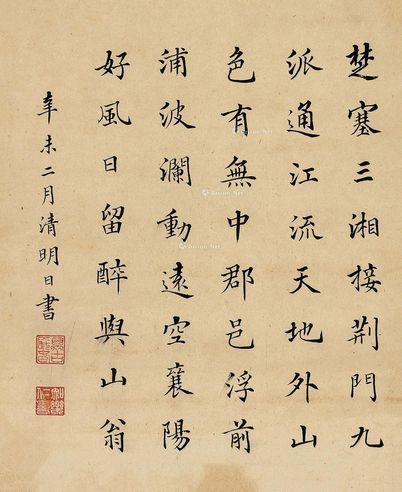 楚塞三湘接荆門九
派通江流天地外山
色有無中郡邑浮前
浦波瀾動遠空襄陽
好風日留醉與山翁
辛未二月清明日書